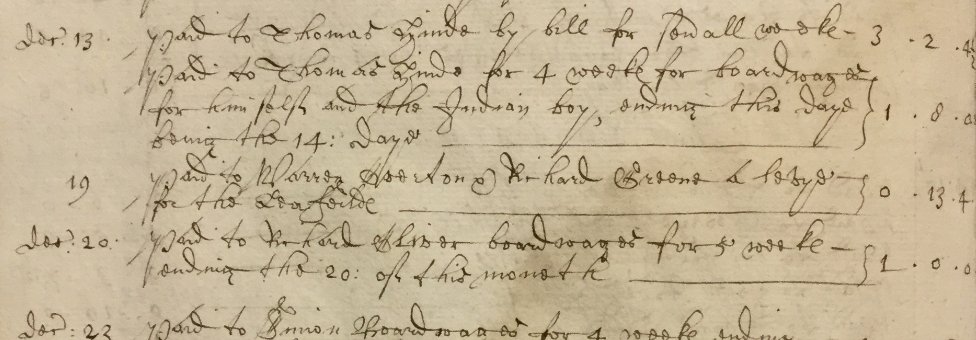 Dec: 13 paid to Thomas Hinde by bill for sevall weeke - 3 . 2 . 4
paid to Thomas Hinde for 4 weeke for boardwages
for him self and the Indian boy, ending this daye 1 . 8 . 0
being the 14: daye
19 paid to Warren Richard Greene
for the 0 . 13 . 4
Dec: 20 paid to Richard Oliver boardwages for 5 weeke -
ending the 20: of this moneth 1 . 0 . 0
Dec: 23 paid to Simon Boardwages for 4 weeke ending